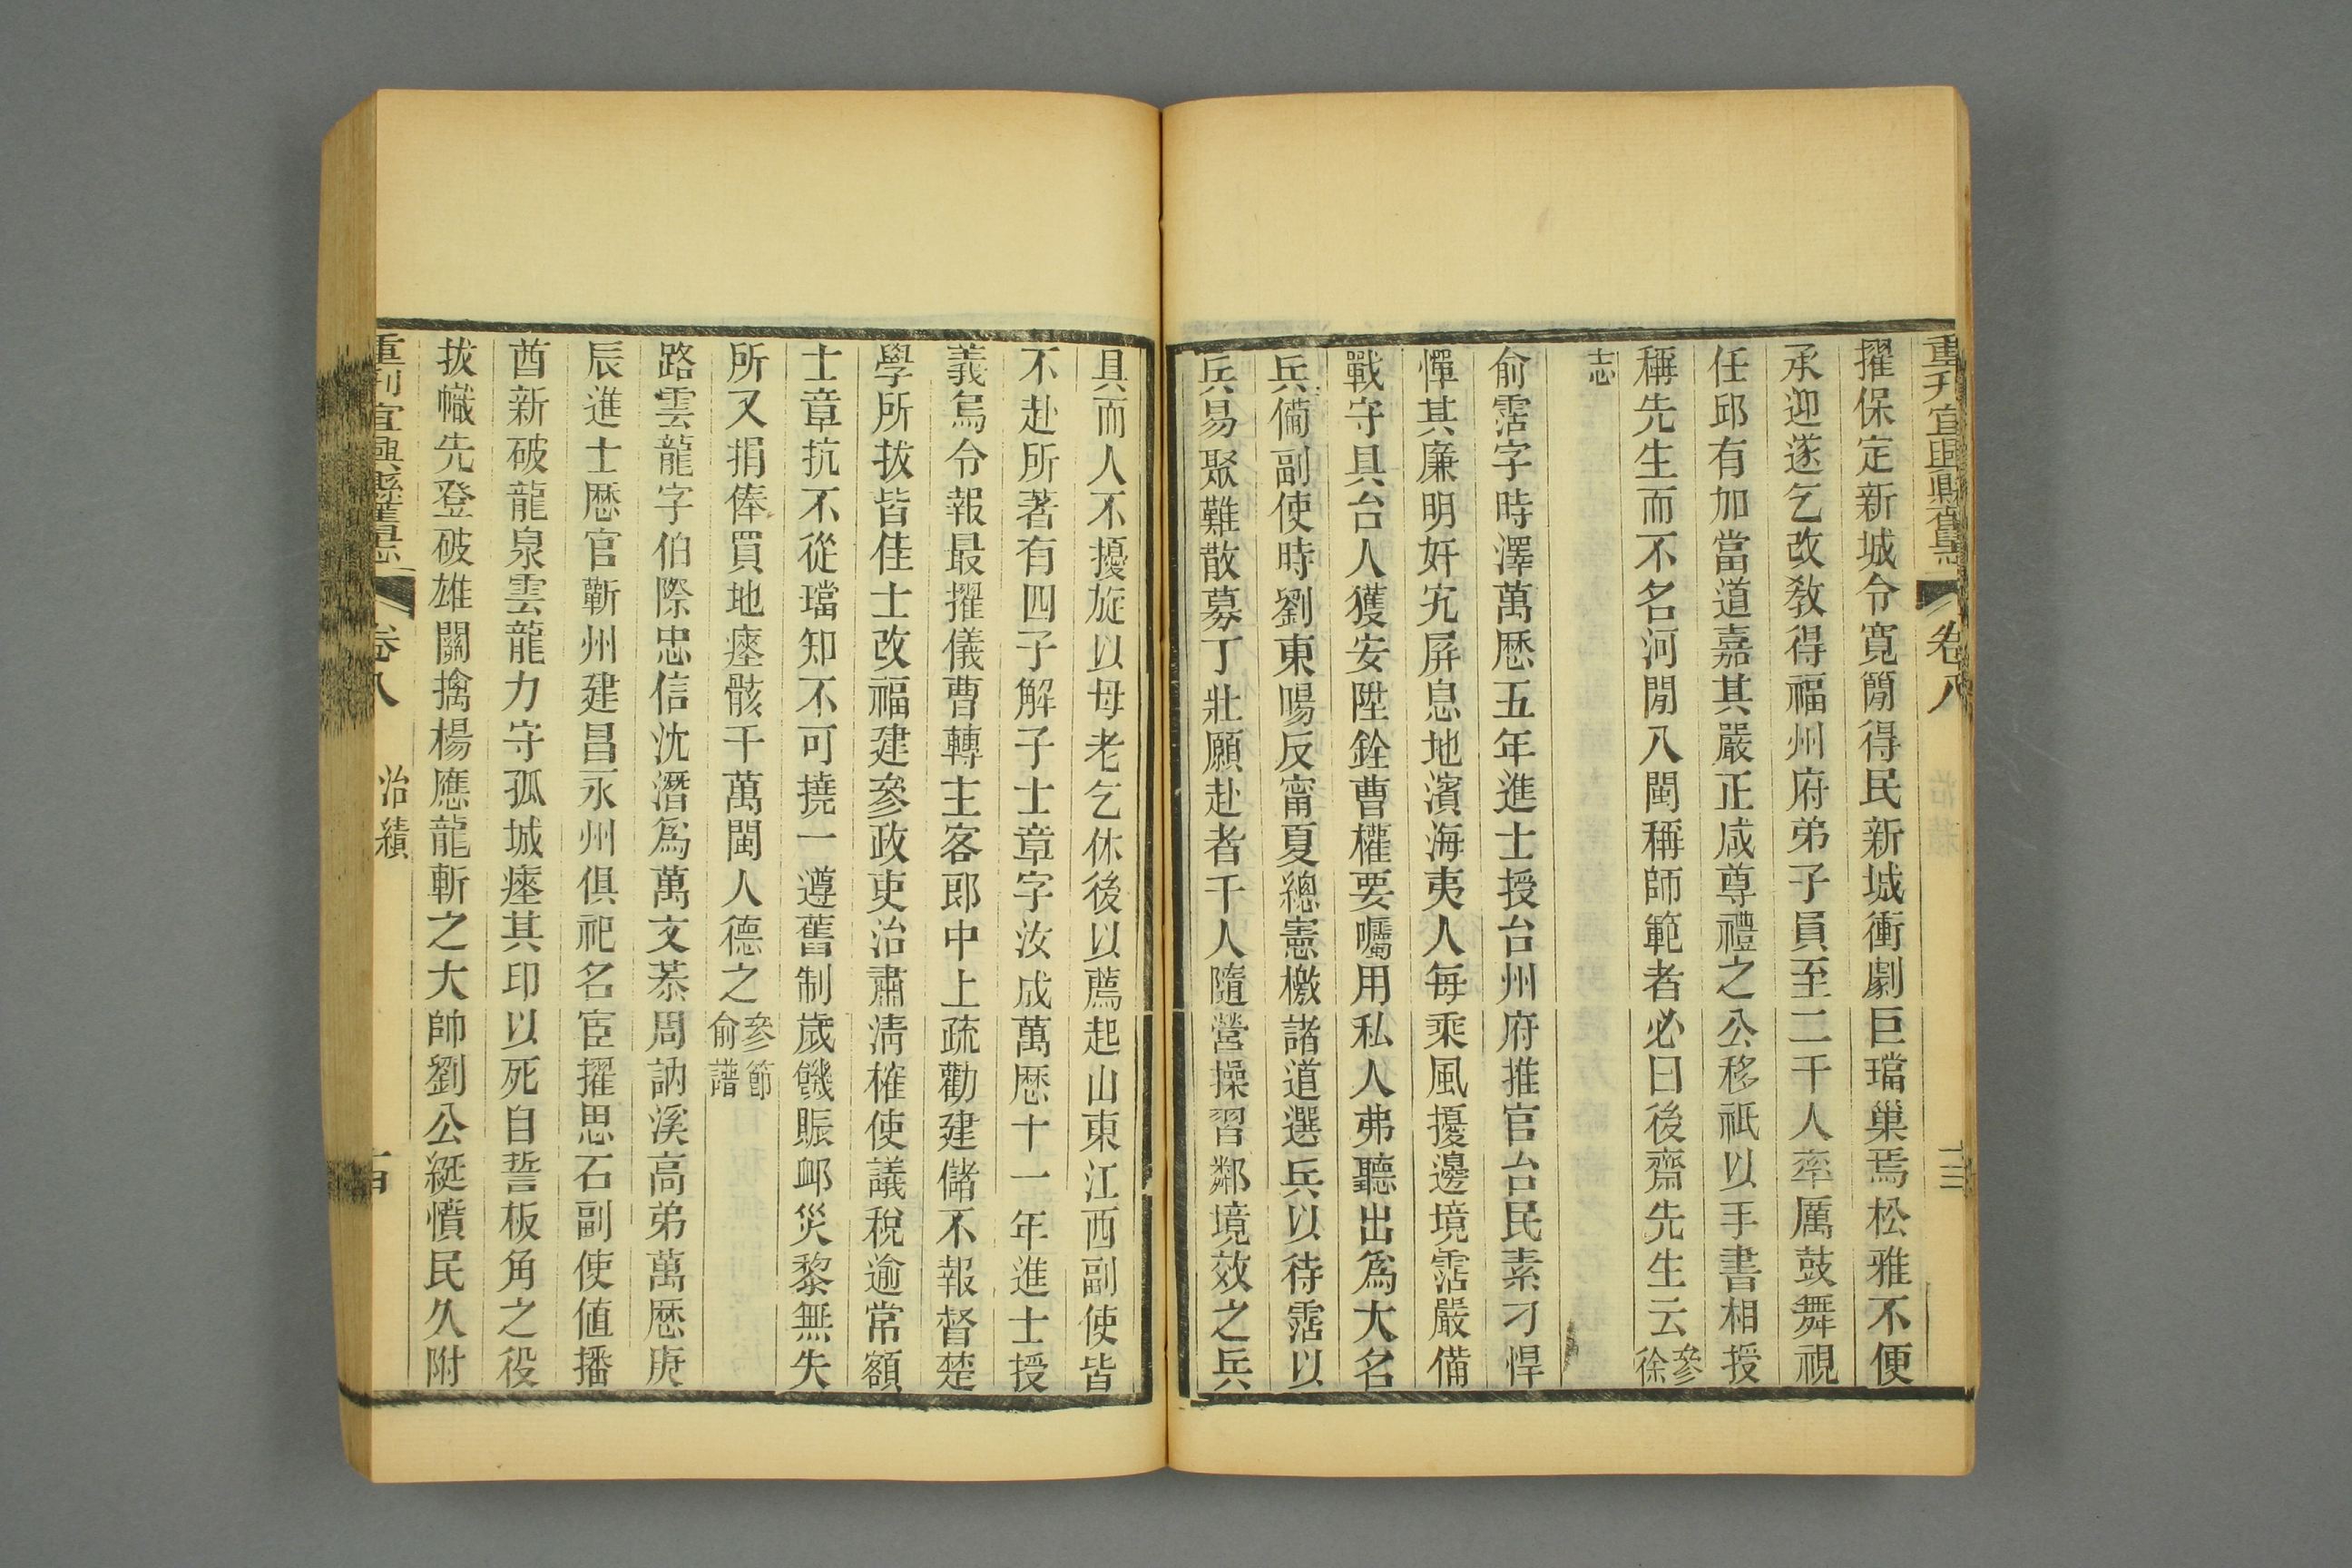 重刋宜興縣舊志 卷八
擢保定新城令寛簡得民新城衝劇巨璫巢焉松雅不便
承迎遂乞改教得福州府弟子員至二千人率厲鼓舞視
任邱有加當道嘉其嚴正咸尊禮之公移祗以手書相授
稱先生而不名河閒八閩稱師範者必曰後齋先生云參徐
志
俞霑字時澤萬厯五年進士授台州府推官台民素刁悍
憚其廉明奸宄屏息地濱海夷人每乘風擾邊境霑嚴備
戰守具台人獲安陞銓曹權要囑用私人弗聽出爲大名
兵備副使時劉東暘反甯夏總憲檄諸道選兵以待霑以
兵易聚難散募丁壯願赴者千人隨營操習鄰境效之兵
具而人不擾旋以母老乞休後以薦起山東江西副使皆
不赴所著有四子解子士章字汝成萬厯十一年進士授
義烏令報最擢儀曹轉主客郎中上疏勸建儲不報督楚
學所拔皆佳士改福建參政吏治肅淸榷使議稅逾常額
士章抗不從璫知不可撓一遵舊制歲饑賑䘏災黎無失
所又捐俸買地瘞骸千萬閩人德之參節俞譜
路雲龍字伯際忠信沈潛爲萬文恭周訥溪高弟萬厯庚
辰進士厯官蘄州建昌永州俱祀名宦擢思石副使値播
酋新破龍泉雲龍力守孤城瘞其印以死自誓板角之役
拔幟先登破雄關擒楊應龍斬之大帥劉公綎憤民久附
重刋宜興縣舊志 卷八 治績